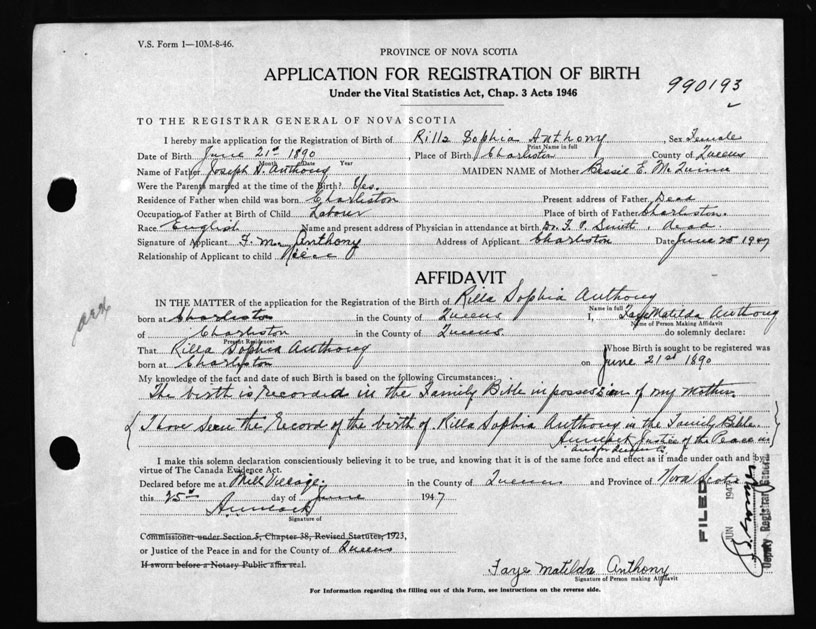 V.S. Form 1—10M-8-46.
PROVINCE OF NOVA SCOTIA
APPLICATION FOR REGISTRATION OF BIRTH
990193
Under the Vital Statistics Act, Chap. 3 Acts 1946
TO THE REGISTRAR GENERAL OF NOVA SCOTIA
I hereby make application for the Registration of Birth of Rilla Sophia Anthony Sex Female
Print Name in full
Date of Birth June 21st 1890, Place of Birth Charliston County of Queens
Month Date Year
Name of Father Joseph D. Anthony MAIDEN NAME of Mother Bessie E. McQuinn
Were the Parents married at the time of the Birth? Yes.
Residence of Father when child was born Charliston Present address of Father Dead
Occupation of Father at Birth of Child Labour Place of birth of Father Charliston.
Race English Name and present address of Physician in attendance at birth Dr. F. P. Smith. dead.
Signature of Applicant F. M. Anthony Address of Applicant Charliston Date June 25 1947
Relationship of Applicant to child Niece
AFFIDAVIT
IN THE MATTER of the application for the Registration of the Birth of Rilla Sophia Anthony
Name in full
born at Charliston in the County of Queens I, Faye Matilda Anthony
Name of Person Making Affidavit
of Charliston in the County of Queens do solemnly declare:
Present Residence
That Rilla Sophia Anthony Whose Birth is sought to be registered was
born at Charliston on June 21st 1890
My knowledge of the fact and date of such Birth is based on the following Circumstances:
The birth is recorded in the Family Bible in possession of my mother.
{I have seen the Record of the birth of Rilla Sophia Anthony in the Family Bible.}
Justice of the Peace in
and for Queens Co.
I make this solemn declaration conscientiously believing it to be true, and knowing that it is of the same force and effect as if made under oath and by
virtue of The Canada Evidence Act.
Declared before me at Mill Village in the County of Queens and Province of Nova Scotia
this 25th day of June 1947
Signature of
Commissioner under Section 5, Chapter 38, Revised Statutes, 1923,
or Justice of the Peace in and for the County of Queens
If sworn before a Notary Public affix seal.
Faye Matilda Anthony
Signature of Person making Affidavit
For Information regarding the filling out of this Form, see instructions on the reverse side.
FILED
JUN 1947
Deputy Registrar General